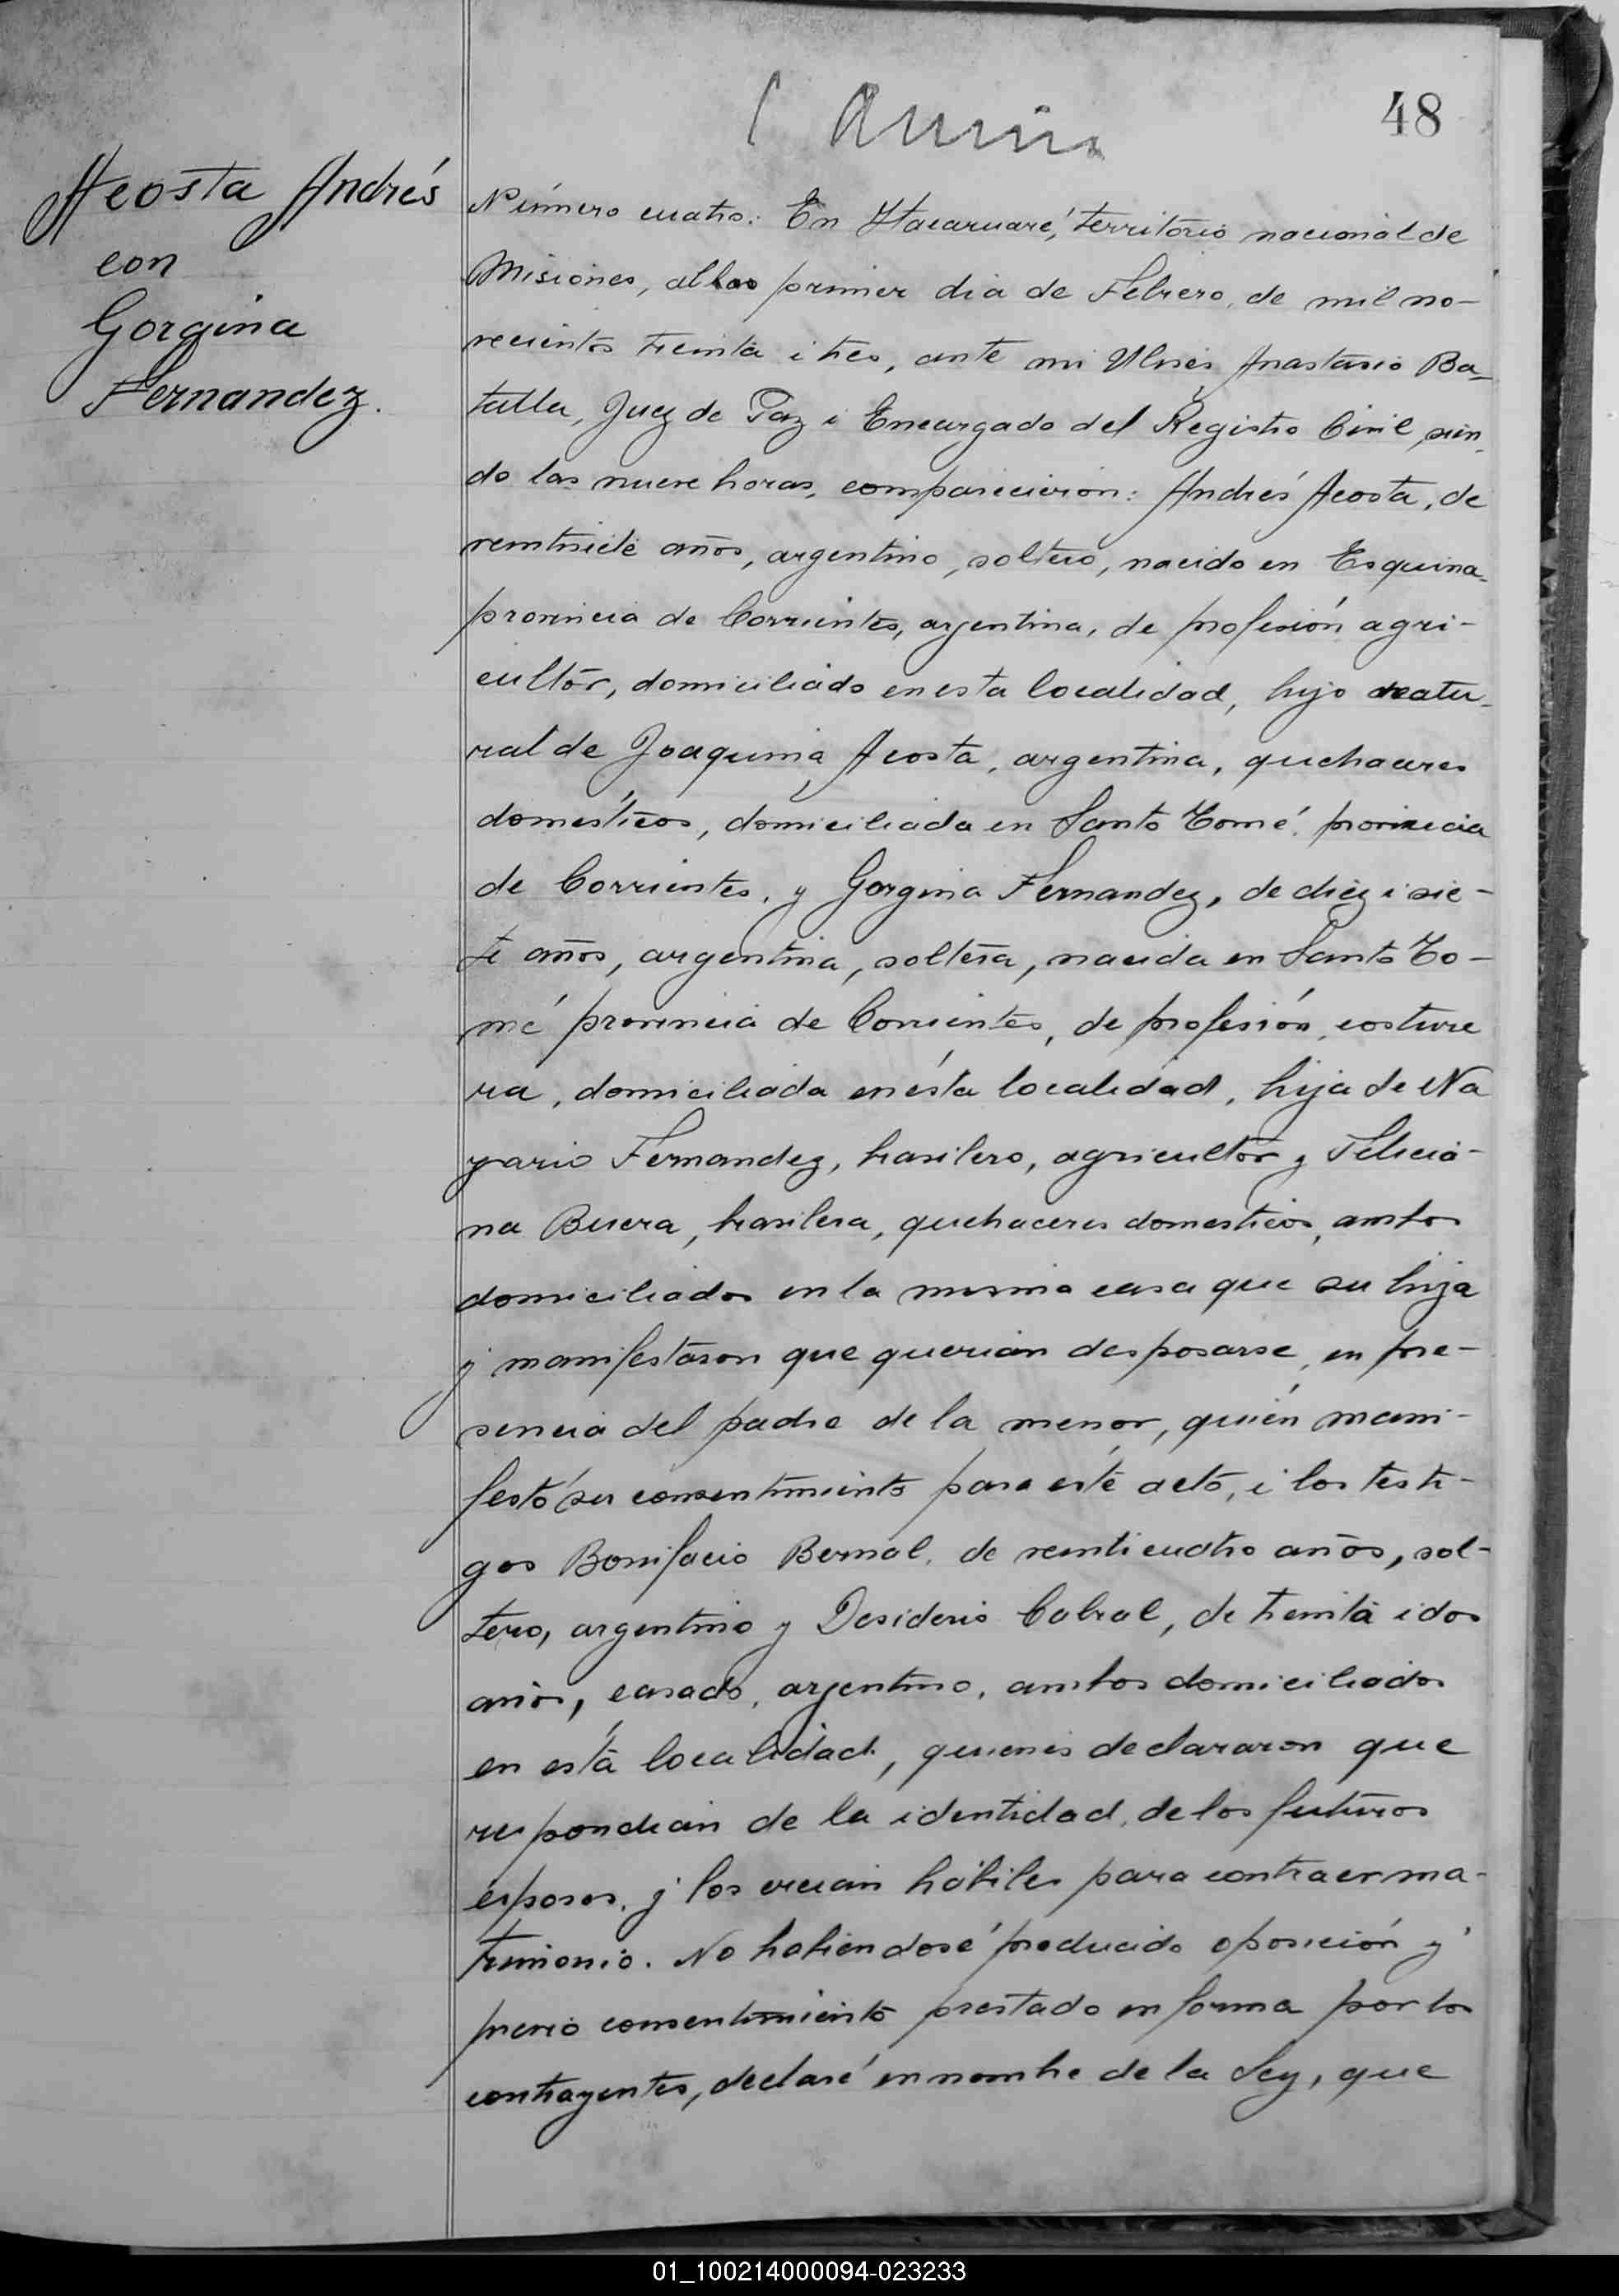 48
Acosta Andrés
con
Gorgina
Fernandez.
Número cuatro: En Itacaruaré, territorio nacional de
Misiones, al primer dia de Febrero, de mil no-
vecientos treinta i tres, ante mi Ulises Anastasio Ba-
talla, Juez de Paz i Encargado del Registro Civil, sien-
do las nueve horas, comparecieron: Andrés Acosta, de
veintisiete años, argentino, soltero, nacido en Esquina-
provincia de Corrientes, argentina, de profesión agri-
cultor, domiciliado en esta localidad, hijo natu-
ral de Joaquina Acosta, argentina, quehaceres
domésticos, domiciliada en Santo Tomé, provincia
de Corrientes, y Gorgina Fernandez, de diez i sie-
te años, argentina, soltera, nacida en Santo To-
mé provincia de Corrientes, de profesión, costure
ra, domiciliada en ésta localidad, hija de Na
zario Fernandez, brasilero, agricultor y Felicia-
na Buera, brasilera, quehaceres domesticos, ambos
domiciliados en la misma casa que su hija
y manifestaron que querian desposarse, en pre-
sencia del padre de la menor, quién mani-
festó su consentimiento para esté acto, i los testi-
gos Bonifacio Bernal, de veinticuatro años, sol-
tero, argentino y Desiderio Cabral, de treinta i dos
años, casado, argentino, ambos domiciliados
en está localidad, quienes declararon que
respondian de la identidad, de los futuros
esposos, y los creian hábiles para contraer ma-
trimonio. No habiendosé producido oposición y
previo consentimiento prestado en forma por los
contrayentes, declaré en nombre de la Ley, que
01_100214000094-023233